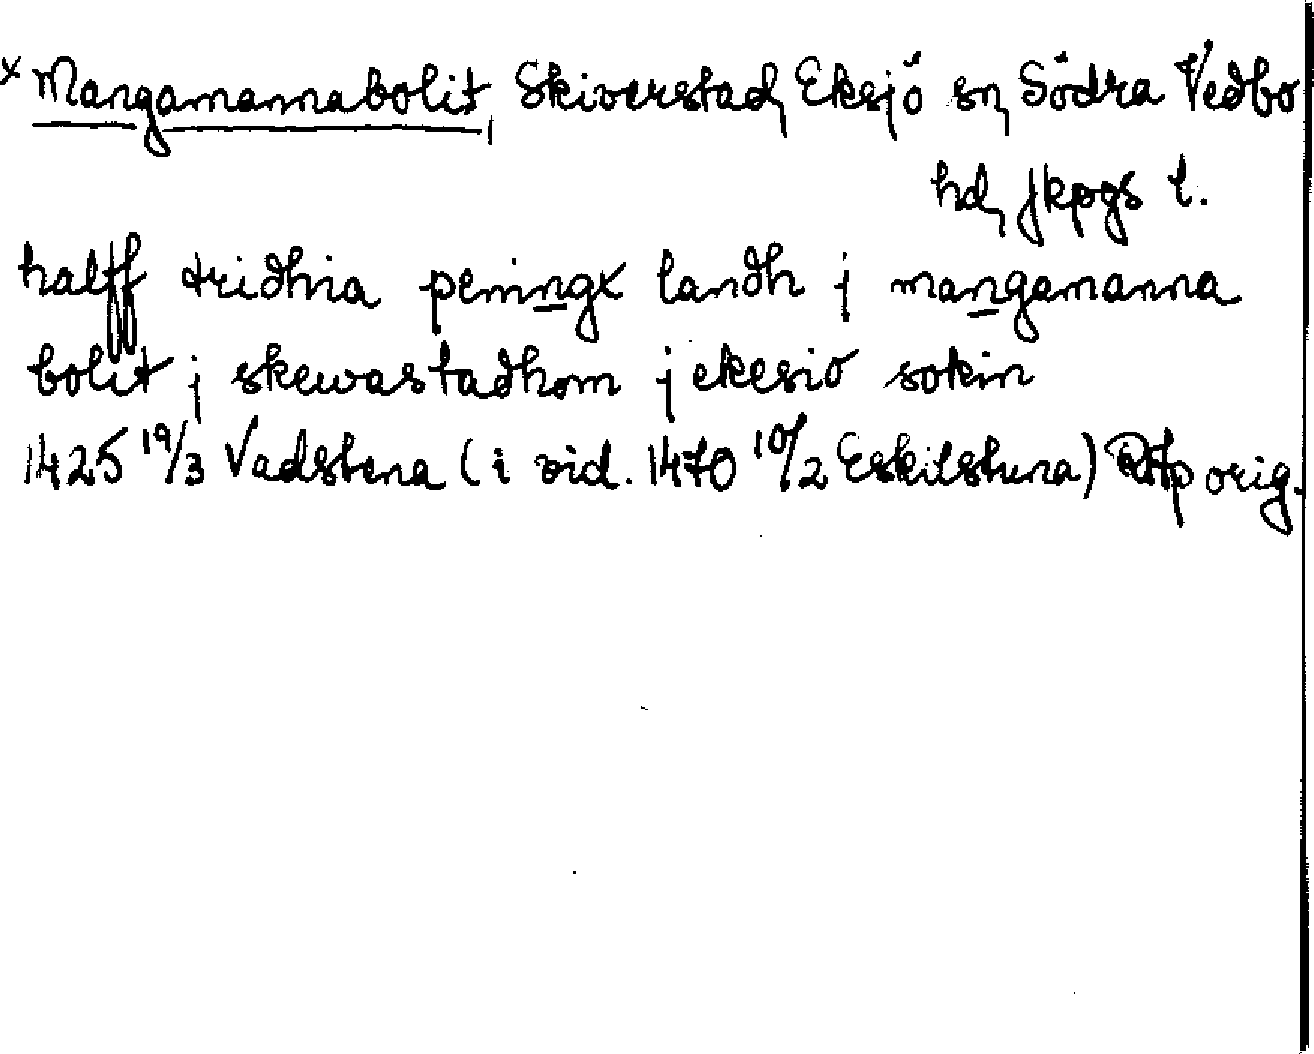 x Mangamannabolit, Skiverstad, Eksjö sn, Södra Vedbo
hd, Jkpgs l.
halff tridhia peningx landh j mangamanna
bolit j skewastadhom j ekesio sokin
1425 19/3 Vadstena (i vid. 1470 10/2 Eskilstuna) RAp orig.